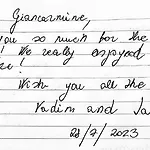 Giancarmine,
ou so much for the
! We really enjoyed
!
Wish you all the
Vadim and Ja
28/7/2023